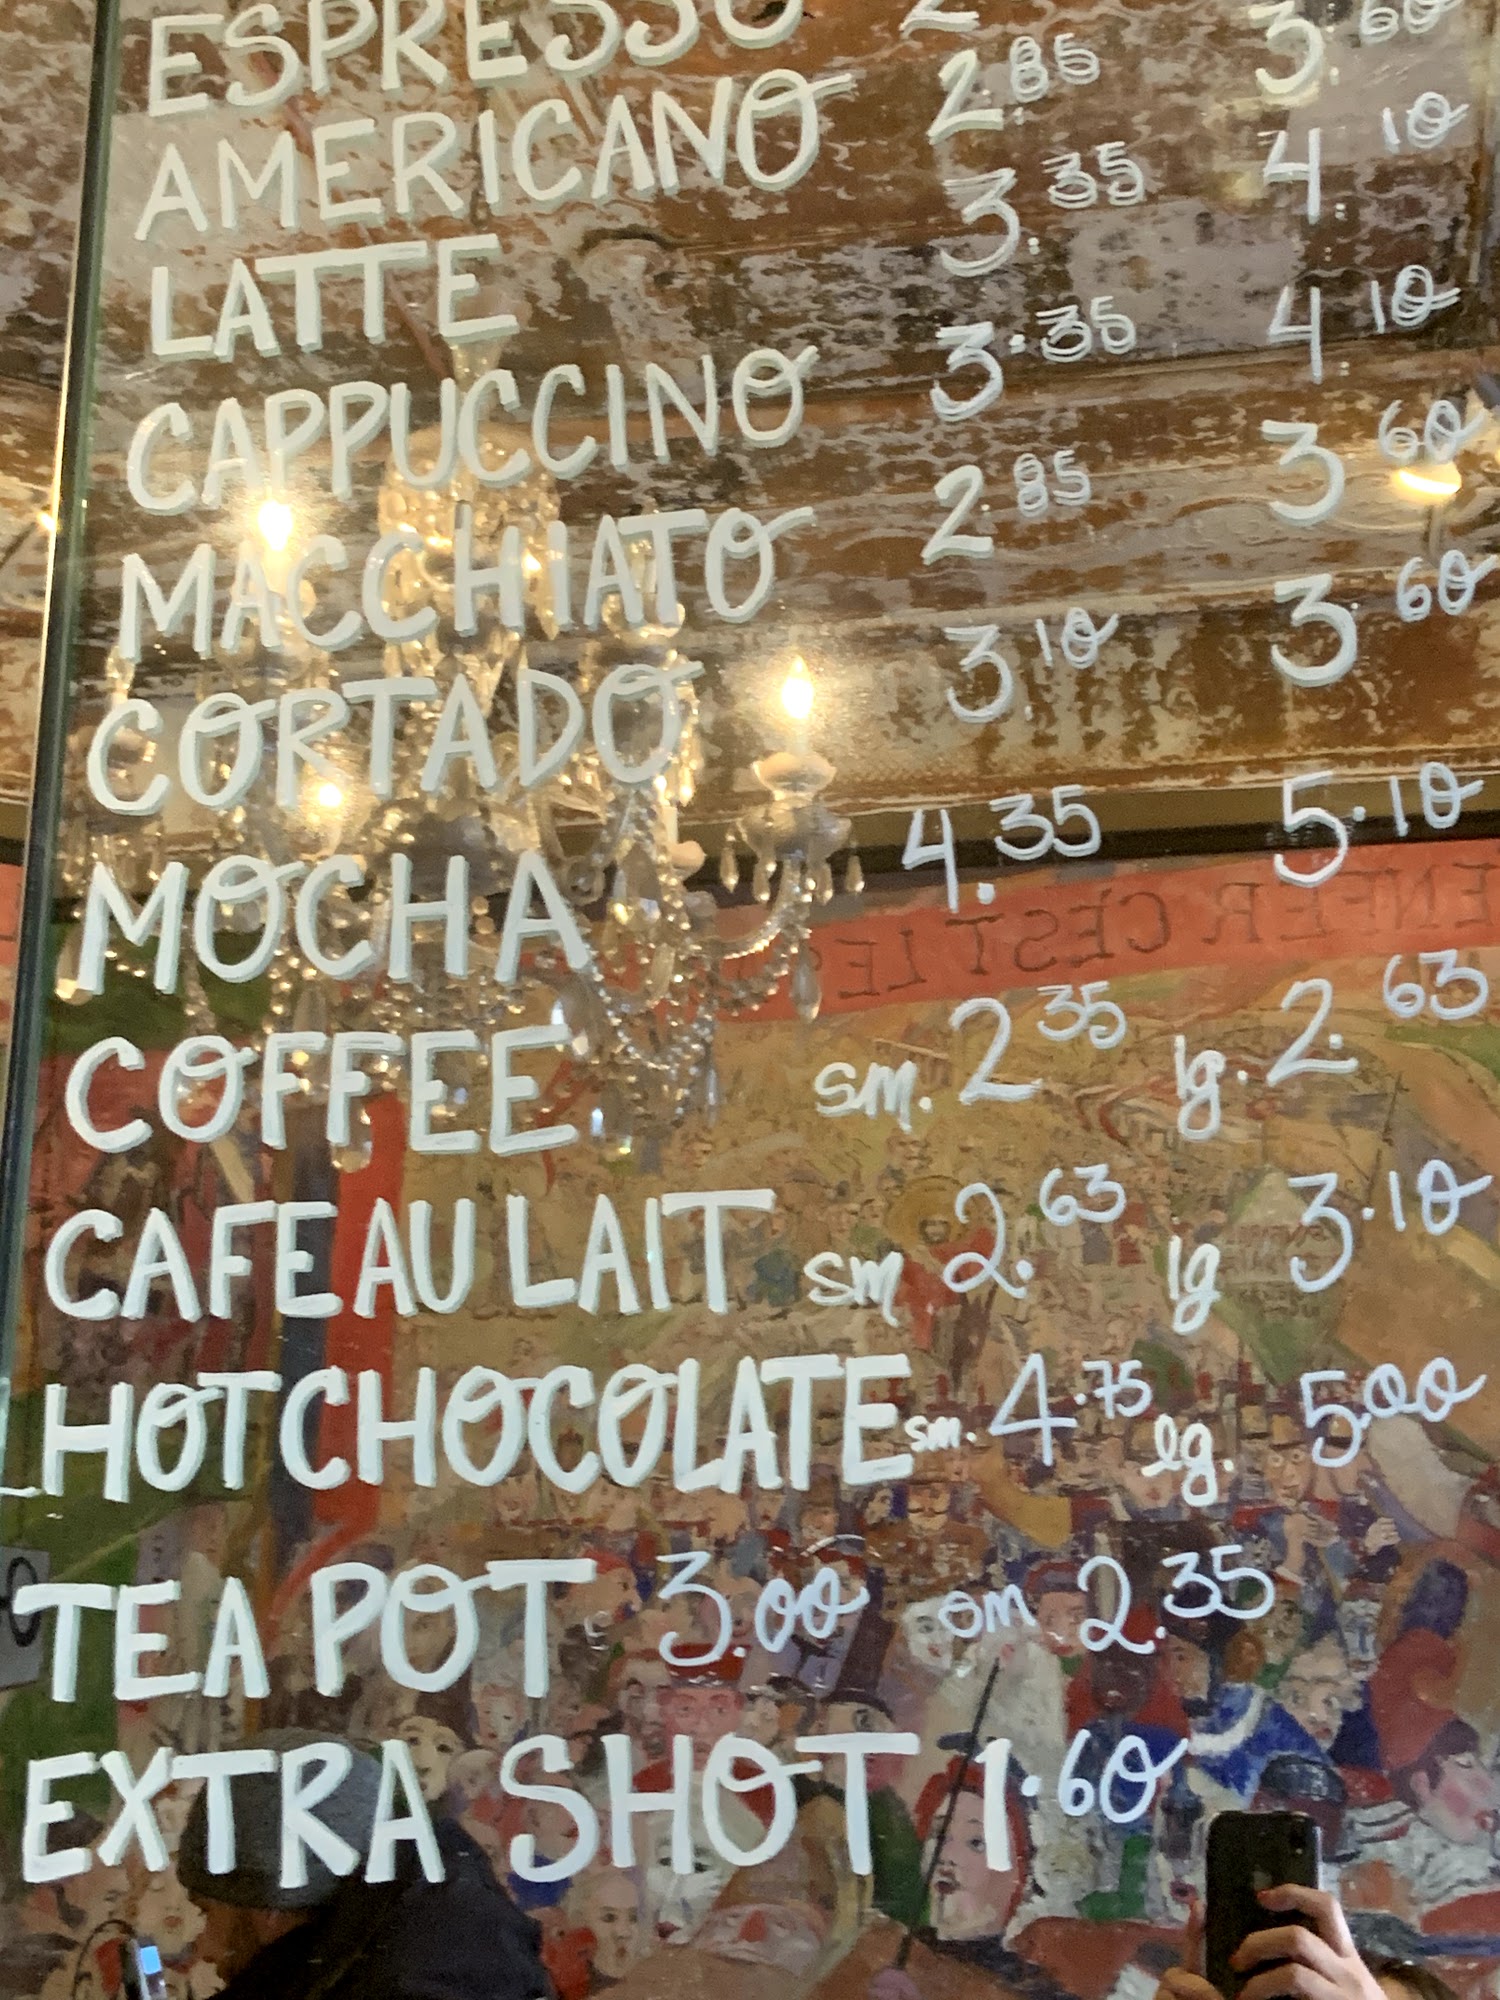 ESPRESSO 2
AMERICANO 2.85 3.60
LATTE 3.35 4.10
CAPPUCCINO 3.35 4.10
MACCHIATO 2.85 3.60
CORTADO 3.10 3.60
MOCHA 4.35 5.10
ENFER C'EST LES
COFFEE sm. 2.35 lg. 2.63
CAFE AU LAIT sm 2.63 lg 3.10
HOT CHOCOLATE sm. 4.75 lg. 5.00
TEA POT 3.00 om 2.35
EXTRA SHOT 1.60